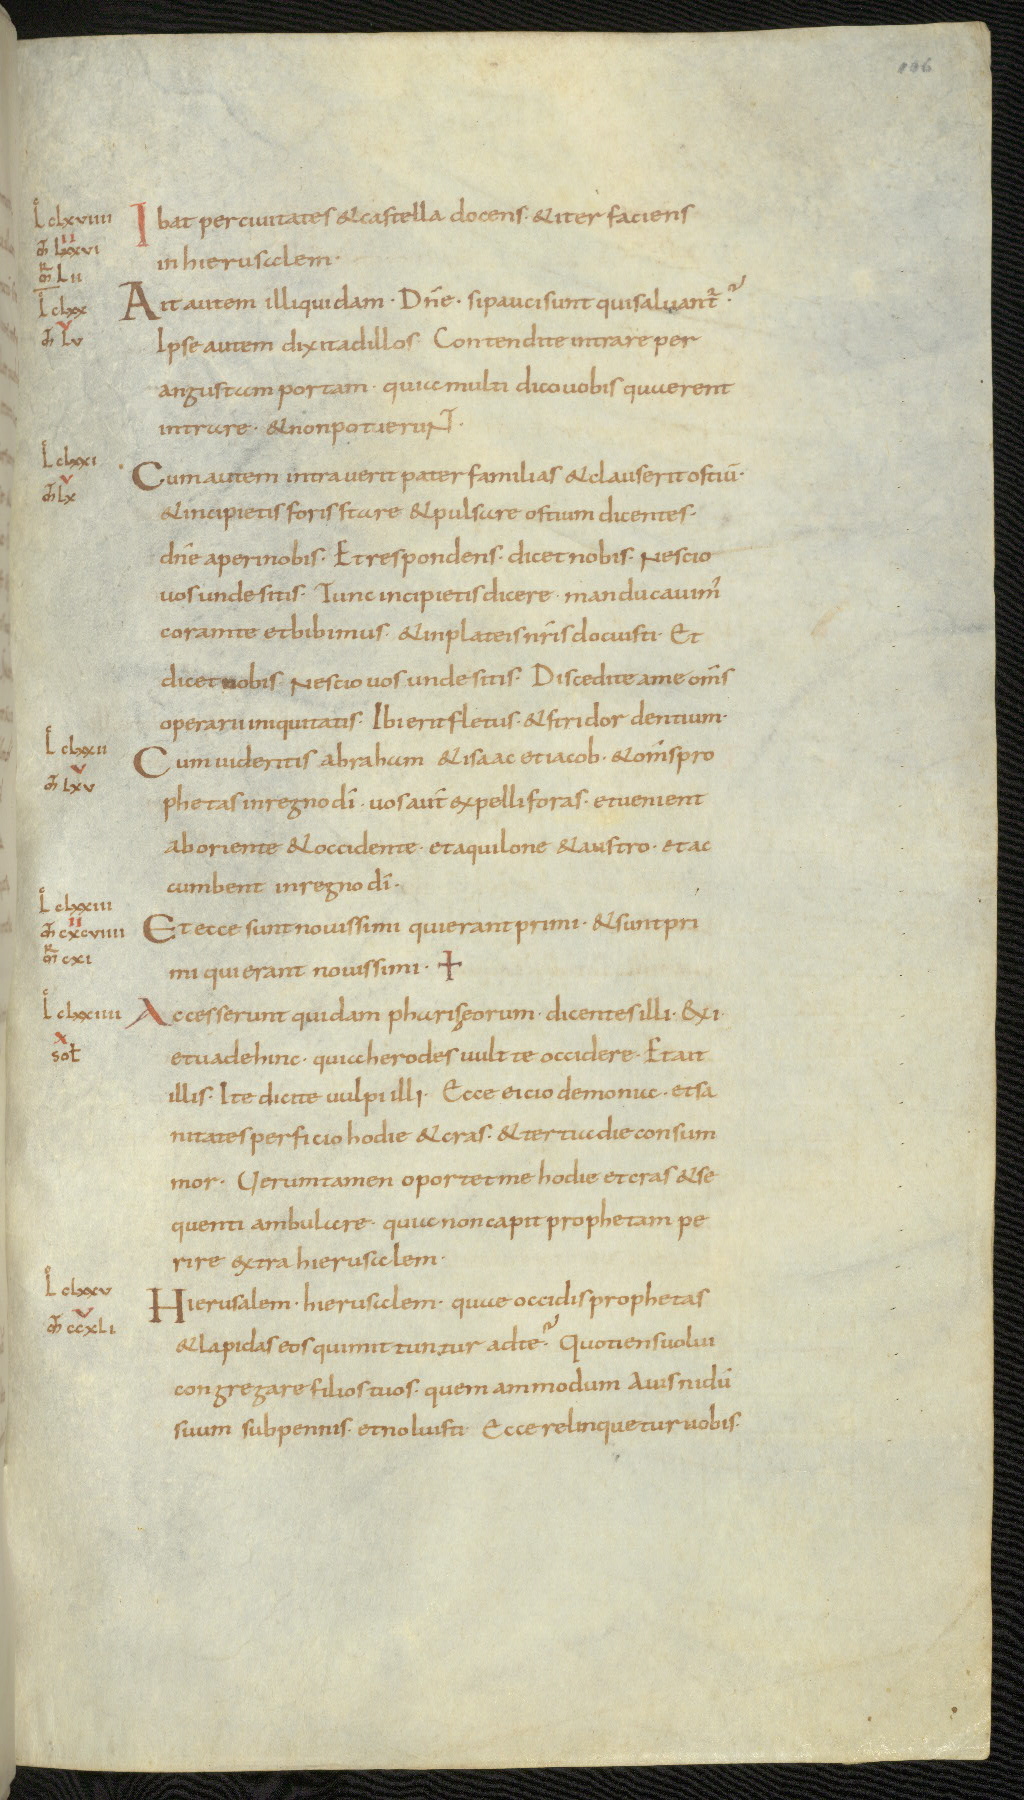 106
L clxviiii
II
mh lxxvi
mr Lii
Ibat per ciuitates &castella docens· &iter faciens
in hierusalem·
L clxx
v
mh Lv
Ait autem illi quidam· Dn̄e· si pauci sunt qui saluant᷑·
Ipse autem dixit ad illos· Contendite intrare per
angustam portam· quia multi dico uobis quaerent
intrare· & non potuerunt·
L clxxi
v
mh Lx
Cum autem intrauerit pater familias & clauserit ostiū·
& incipietis foris stare & pulsare ostium dicentes·
dn̄e aperi nobis· Et respondens· dicet nobis· Nescio
uos unde sitis· Tunc incipietis dicere· manducauim᾽
coram te et bibimus· & in plateis nr̄is docuisti· Et
dicet nobis· Nescio uos unde sitis· Discedite a me om̄s
operarii iniquitatis· Ibi erit fletus· & stridor dentium·
L clxxii
v
mh Lxv
Cum uideritis abraham & isaac et iacob· & om̄s pro
phetas in regno dī· uos aut̄ expelli foras· et uenient
ab oriente & occidente· et aquilone & austro· et ac
cumbent in regno dī·
L clxxiii
II
mh cxcviiii
mr cxi
Et ecce sunt nouissimi qui erant primi· & sunt pri
mi qui erant nouissimi· +
L clxxiiii
x
sol
Accesserunt quidam pharisęorum· dicentes illi· Exi·
et uade hinc· quia herodes uult te occidere· Et ait
illis· Ite dicite uulpi illi· Ecce eicio demonia· et sa
nitates perficio hodie & cras· & tertia die consum
mor· Uerumtamen oportet me hodie et cras & se
quenti ambulare· quia non capit prophetam pe
rire extra hierusalem·
L clxxv
v
mh ccxLi
Hierusalem· hierusalem· quae occidis prophetas
& lapidas eos qui mittuntur ad te· Quotiens uolui
congregare filios tuos· quem ammodum Auis nidū
suum sub pennis· et noluisti· Ecce relinquetur uobis·